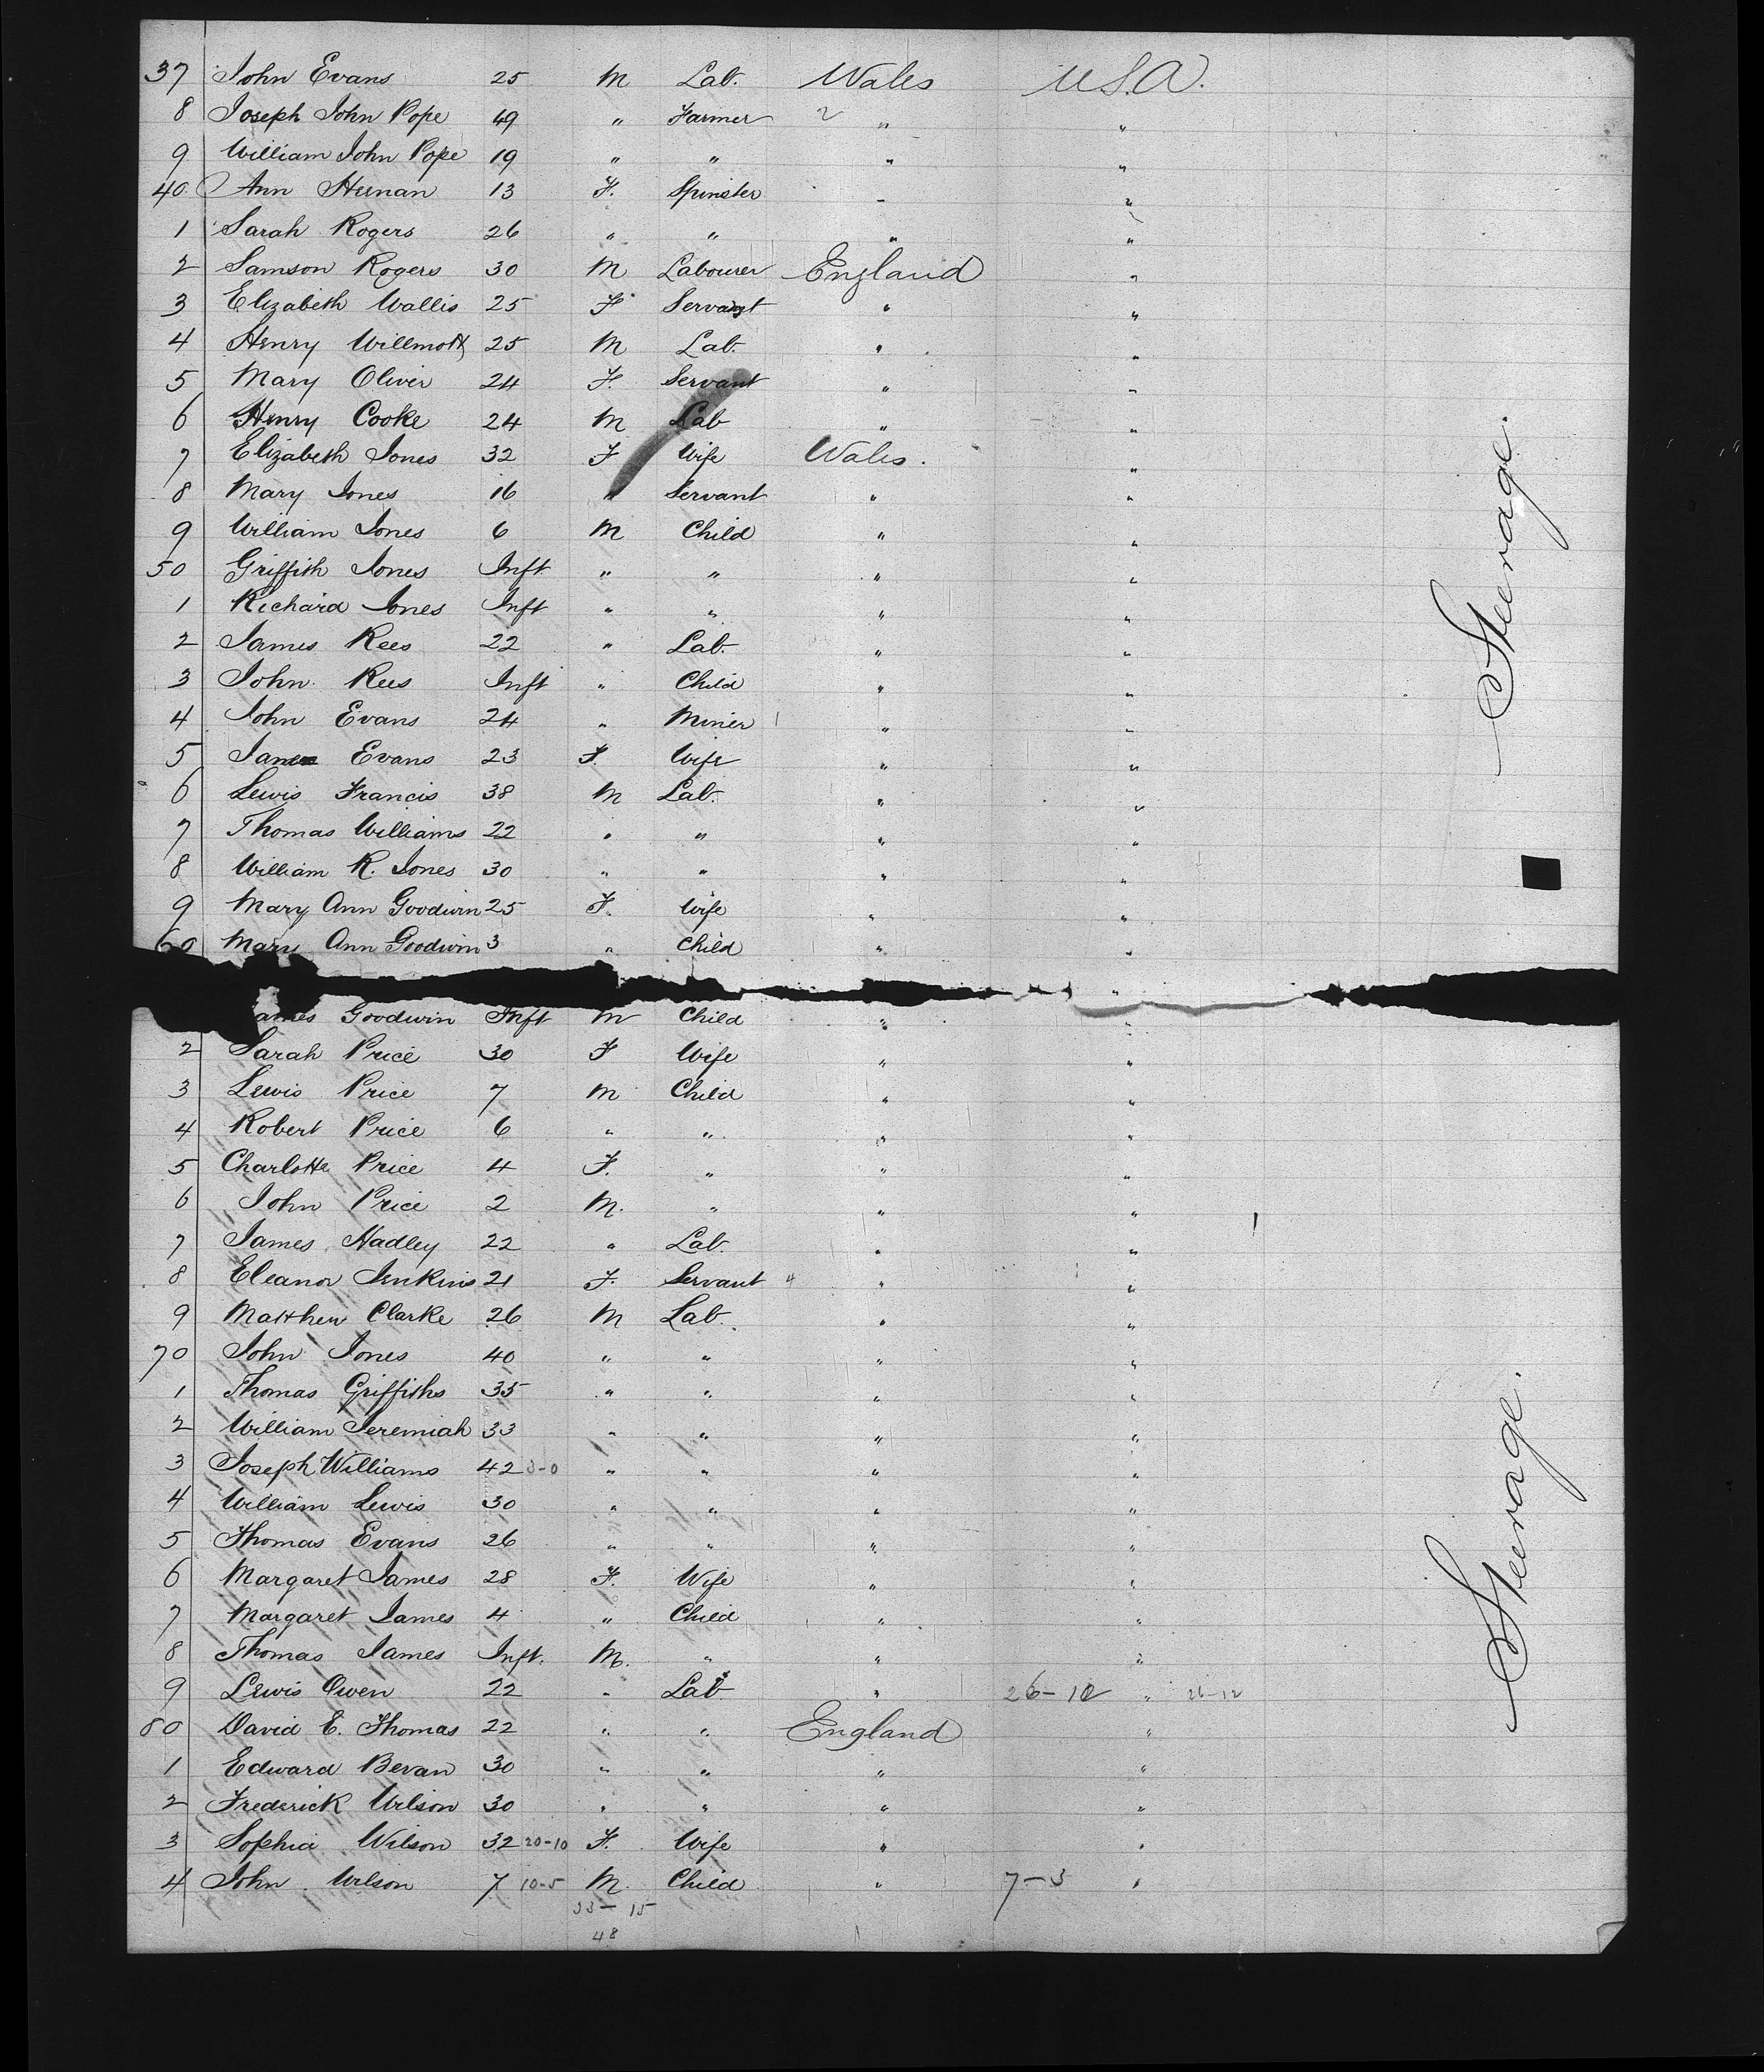 37 John Evans 25 M Lab. Wales U.S.A.
8 Joseph John Pope 49 " Farmer 2 " "
9 William John Pope 19 " " " "
40 Ann Heenan 13 F. Spinster " "
1 Sarah Rogers 26 " " " "
2 Samson Rogers 30 M Labourer England "
3 Elizabeth Wallis 25 F Servant " "
4 Henry Willmott 25 M Lab. " "
5 Mary Oliver 24 F. Servant " "
6 Henry Cooke 24 M Lab " "
7 Elizabeth Jones 32 F Wife Wales. "
8 Mary Jones 16 " Servant " "
9 William Jones 6 M Child " "
50 Griffith Jones Inft " " " "
1 Richard Jones Inft " " " "
2 James Rees 22 " Lab. " "
3 John Rees Inft " Child " "
4 John Evans 24 " Miner 1 " "
5 Jane Evans 23 F. Wife " "
6 Lewis Francis 38 M Lab. " "
7 Thomas Williams 22 " " " "
8 William R. Jones 30 " " " "
9 Mary Ann Goodwin 25 F. Wife " "
60 Mary Ann Goodwin 3 " Child " "
James Goodwin Inft M Child " "
2 Sarah Price 30 F Wife " "
3 Lewis Price 7 M Child " "
4 Robert Price 6 " " " "
5 Charlotte Price 4 F. " " "
6 John Price 2 M. " " "
7 James Hadley 22 " Lab. " "
8 Eleanor Jenkins 21 F. Servant 4 " "
9 Matthew Clarke 26 M Lab. " "
70 John Jones 40 " " " "
1 Thomas Griffiths 35 " " " "
2 William Jeremiah 33 " " " "
3 Joseph Williams 42 3-0 " " " "
4 William Lewis 30 " " " "
5 Thomas Evans 26 " " " "
6 Margaret James 28 F. Wife " "
7 Margaret James 4 " Child " "
8 Thomas James Inft. M. " " "
9 Lewis Owen 22 " Lab " 26-12 " 26-12
80 David E. Thomas 22 " " England "
1 Edward Bevan 30 " " " "
2 Frederick Wilson 30 " " " "
3 Sophia Wilson 32 20-10 F. Wife " "
4 John Wilson 7 10-5 M. Child " 7-3 "
33-15
48
Steerage.
Steerage.